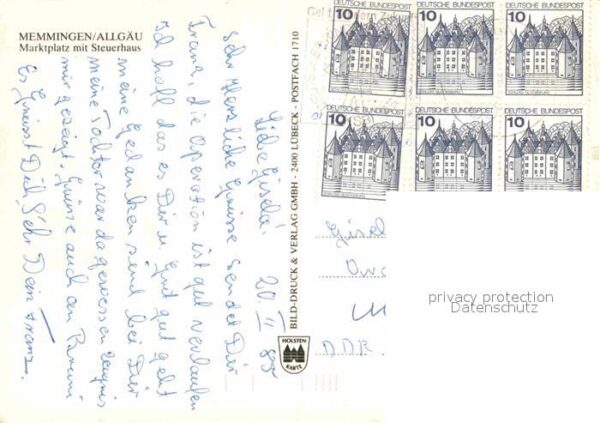 MEMMINGEN/ALLGÄU
Marktplatz mit Steuerhaus
Liebe Gisela! 20. II 89
Sehr Herzliche Grüsse Sendet Dir
Franz, die Operation ist gut verlaufen
Ich hoff das es Dir u. gut geht
meine Gedanken sind bei Dir
meine Tochter war da gewesen Zeugnis
mir gezeigt. Grüsse auch an
Es Grüsst Dich Sehr Dein Franz.
BILD-DRUCK & VERLAG GMBH - 2400 LÜBECK - POSTFACH 1710
HOLSTEN
KARTE
10 DEUTSCHE BUNDESPOST
10 DEUTSCHE BUNDESPOST
10 DEUTSCHE BUNDESPOST
10 DEUTSCHE BUNDESPOST
10 DEUTSCHE BUNDESPOST
10 DEUTSCHE BUNDESPOST
Gisel
DDR
privacy protection
Datenschutz